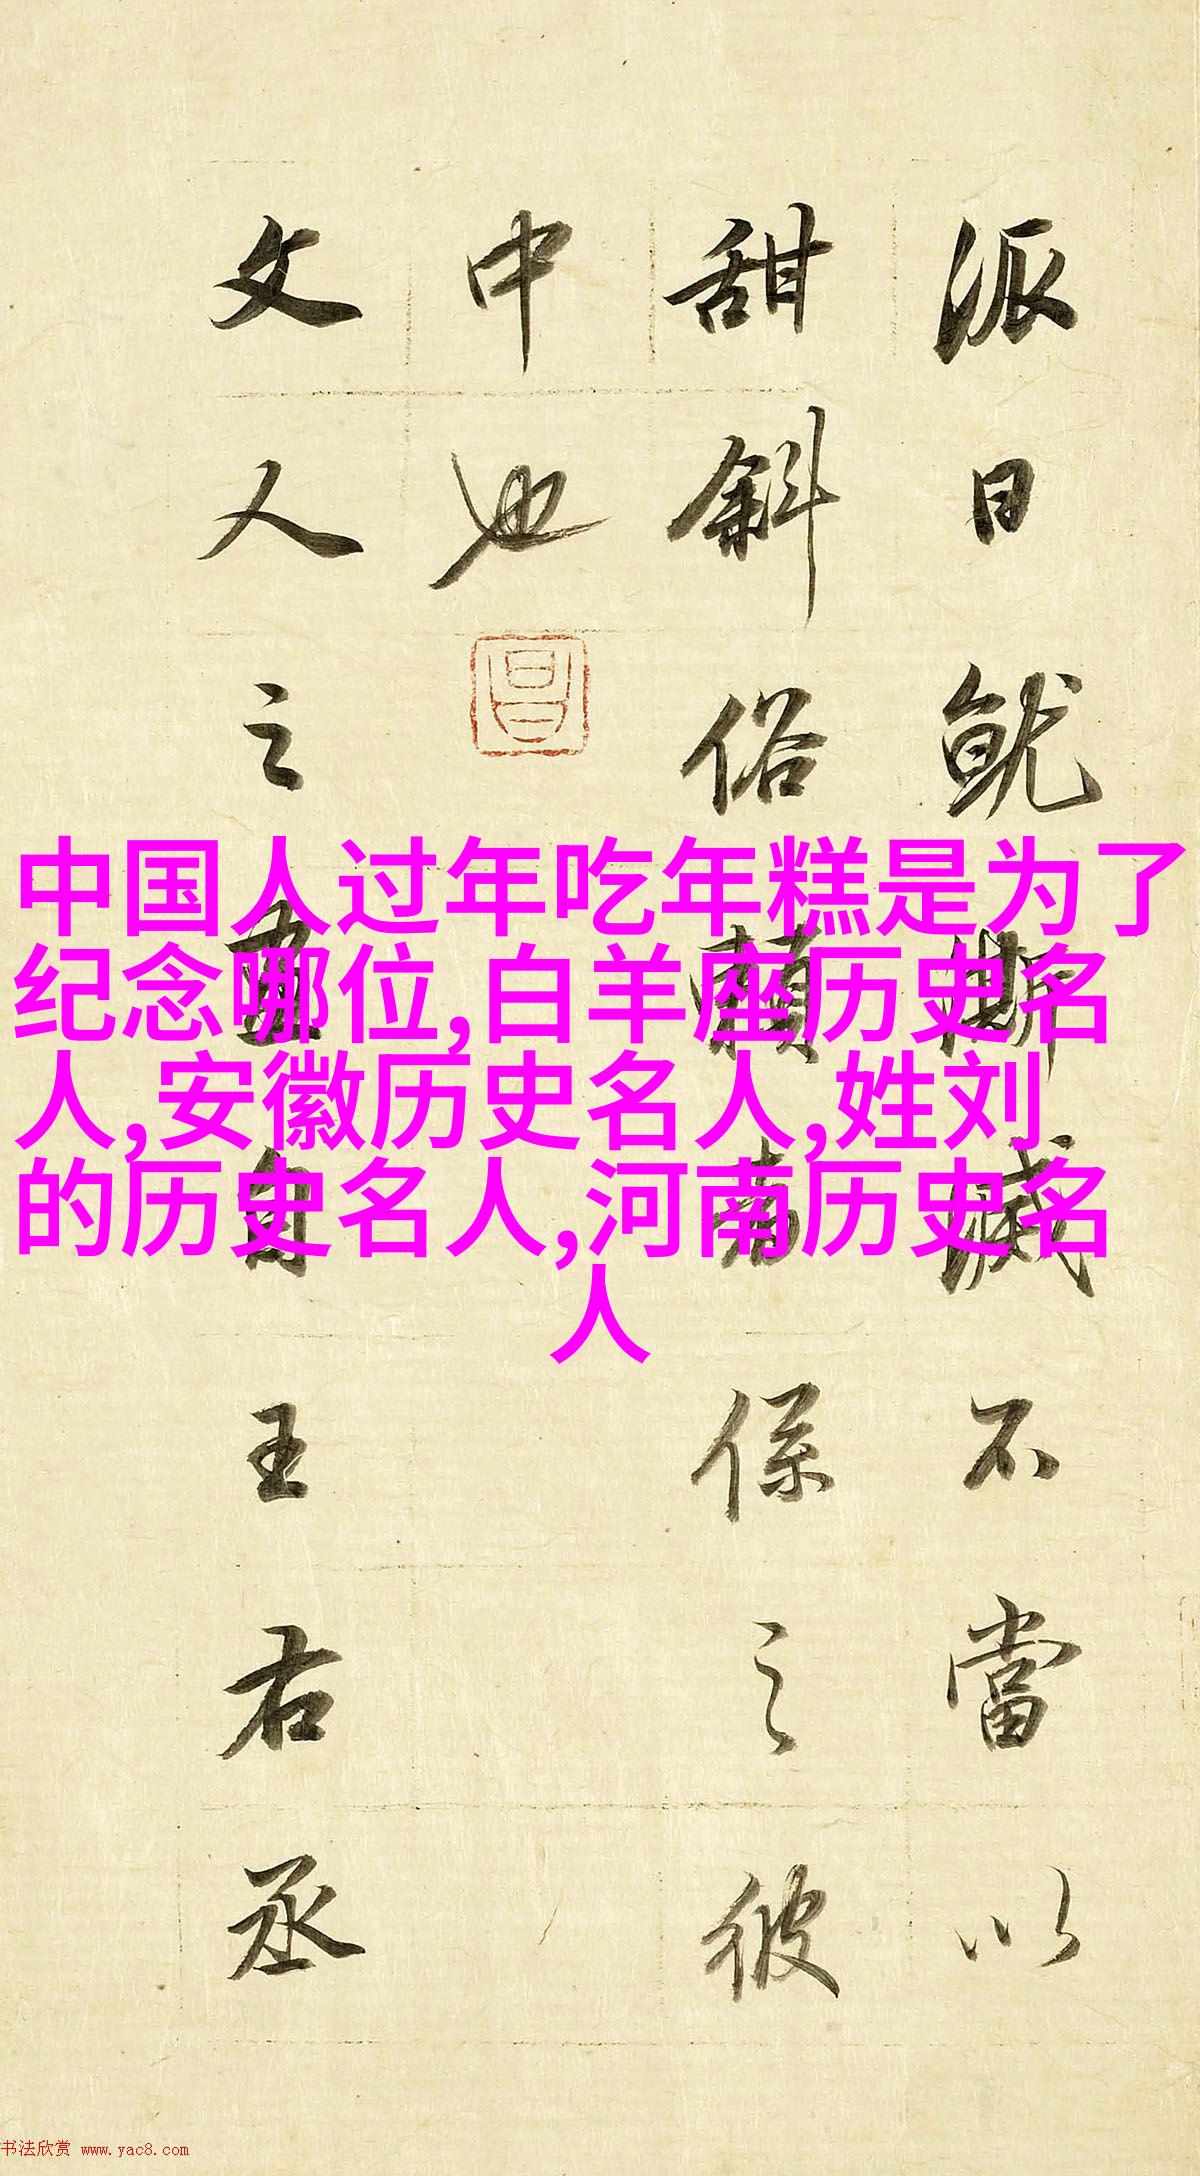 派日就澌滅不當以
甜斜俗賴者係之彼
中也
昌
文人之畫自王右丞
中国人过年吃年糕是为了
纪念哪位,白羊座历史名
人,安徽历史名人,姓刘
的历史名人,河南历史名
人
书法欣赏 www.yac8.com